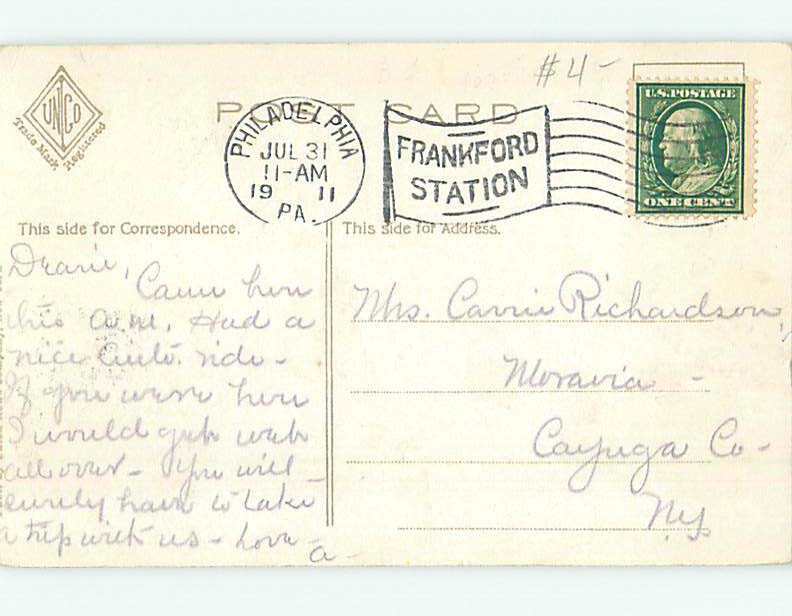 $4-
UNCO
Trade Mark Registered
POST CARD
PHILADELPHIA
JUL 31
11-AM
19 11
PA.
FRANKFORD
STATION
U.S. POSTAGE
ONE CENT
This side for Correspondence.
Dearie,
Came here
this a.m. Had a
nice Auto. ride-
If you were here
I would
all over- You will
surely have to take
a trip with us- Love-
a-
This side for Address.
Mrs. Carrie Richardson,
Moravia -
Cayuga Co-
N.Y.